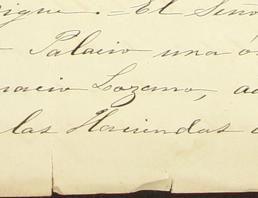 sigue. = El Seño
Palacio una ó
nacio Lozano, ad
las Haciendas d